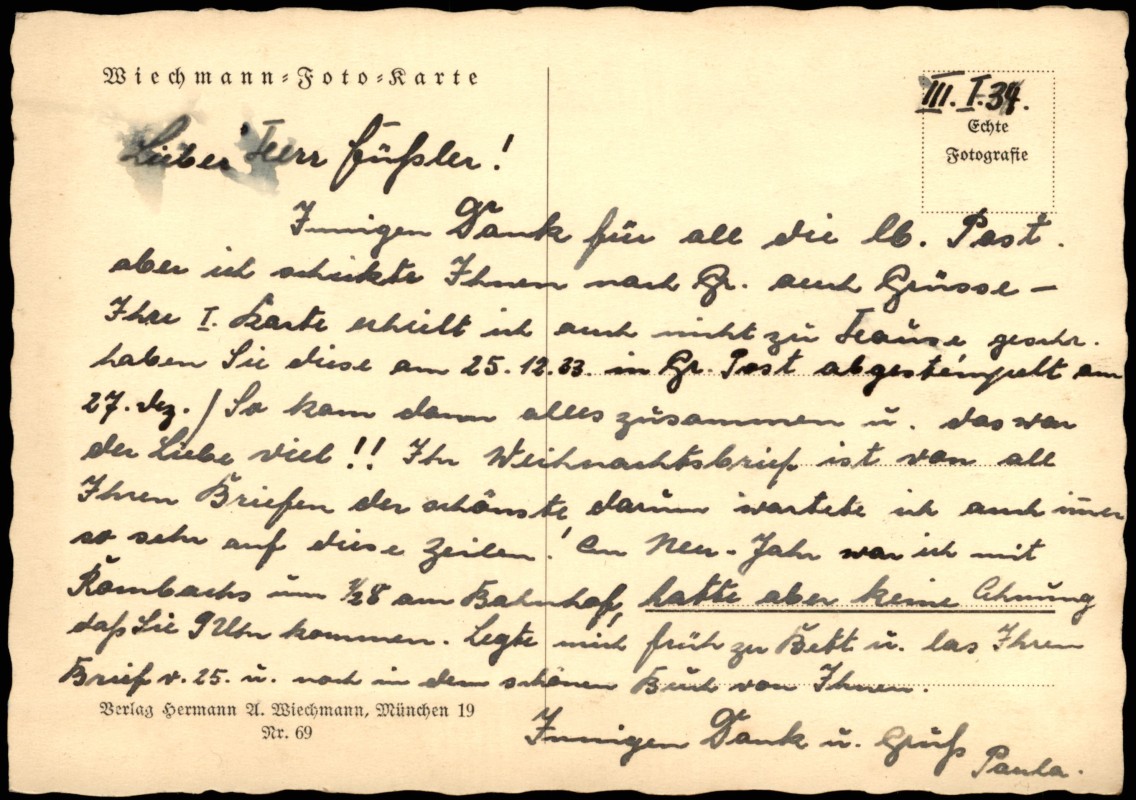 Wiechmann-Foto-Karte
III. I. 34.
Echte
Fotografie
Lieber Herr Füßler!
Innigen Dank für all die lb. Post.
aber ich schickte Ihnen nach Gr. auch Grüsse –
Ihre I. Karte erhielt ich auch nicht zu Hause geschr.
haben Sie diese am 25.12.33. in Gr. Post abgestempelt am
27. Dez. / So kam dann alles zusammen u. das war
der Liebe viel!! Ihr Weihnachtsbrief ist von all
Ihren Briefen der schönste, darum wartete ich auch im̄er
so sehr auf diese Zeilen! An Neu-Jahr war ich mit
Rombachs um ½8 am Bahnhof, hatte aber keine Ahnung
daß Sie 9 Uhr kommen. Legte mich früh zu Bett u. las Ihren
Brief v. 25. u. noch in dem schönen Buch von Ihnen.
Verlag Hermann A. Wiechmann, München 19
Nr. 69
Innigen Dank u. Gruß
Paula.